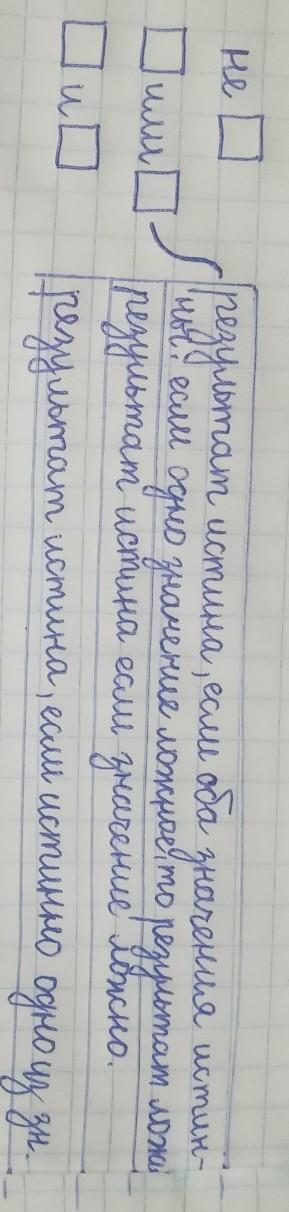 не
или
и
результат истина, если оба значения истин-
ны, если одно значение ложное, то результат ложь
результат истина если значение ложно.
результат истина, если истинно одно из зн.